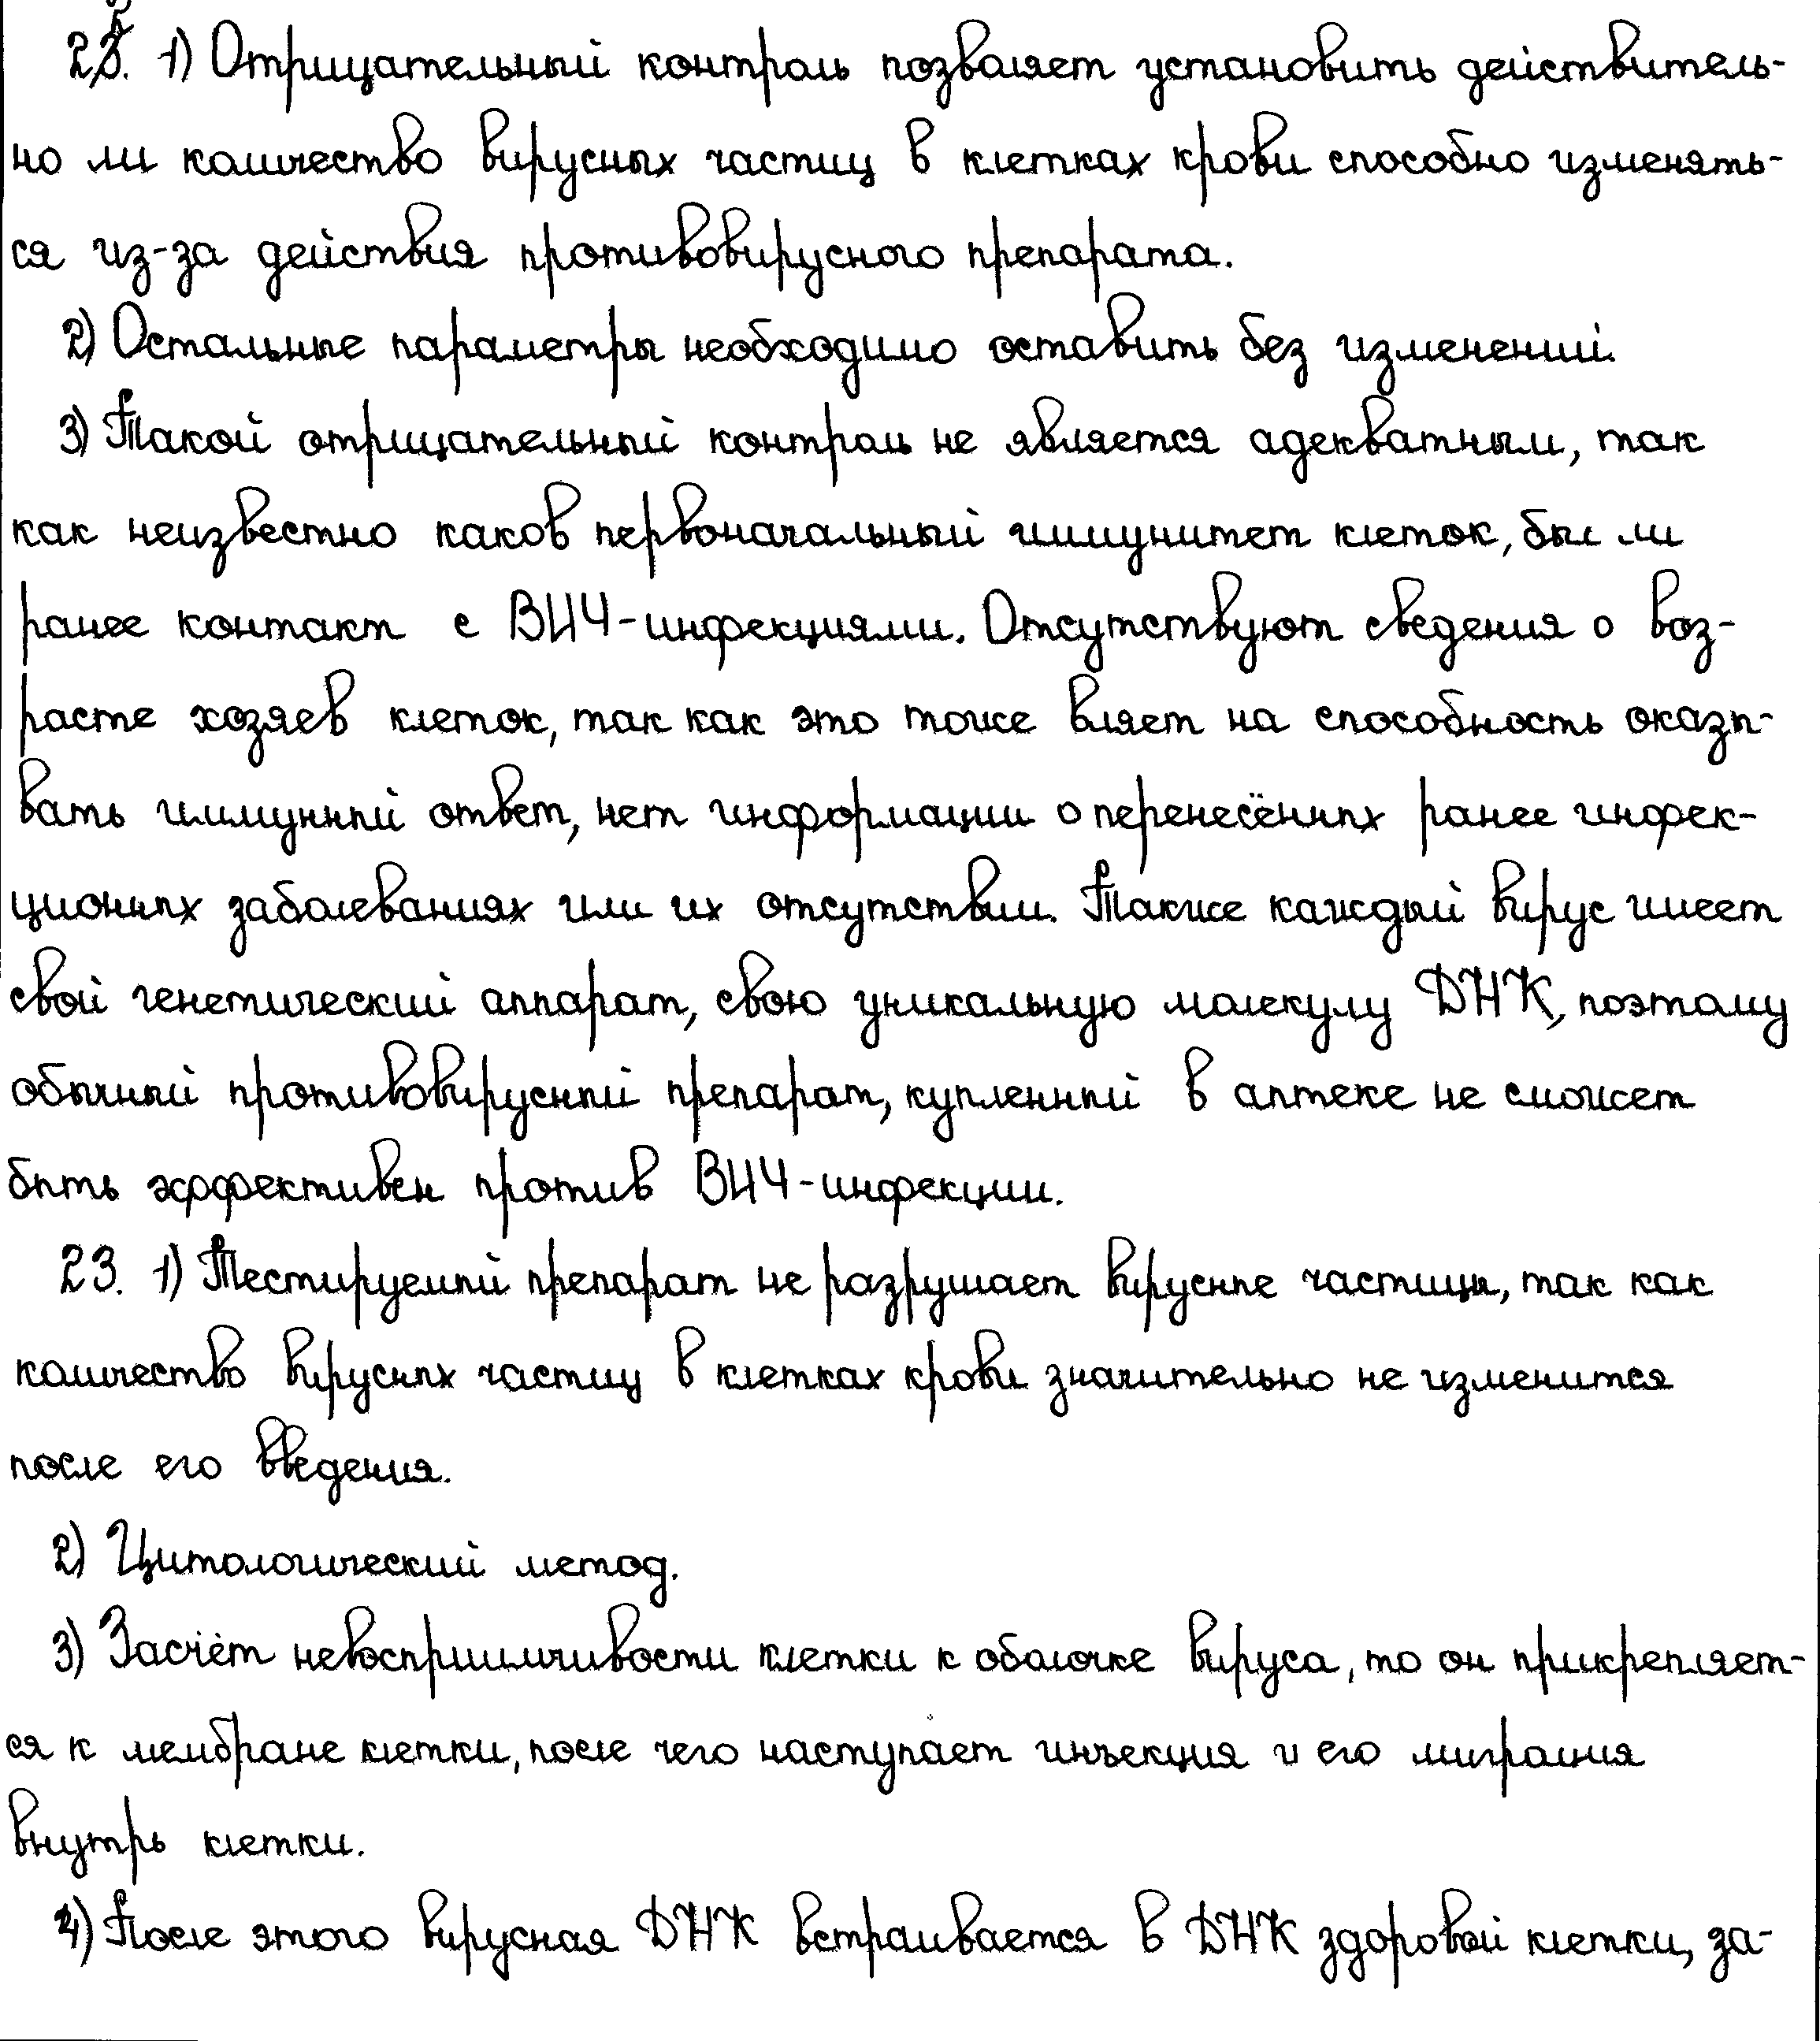 22. 1) Отрицательный контроль позволяет установить действитель-
но ли количество вирусных частиц в клетках крови способно изменять-
ся из-за действия противовирусного препарата.
2) Остальные параметры необходимо оставить без изменений.
3) Такой отрицательный контроль не является адекватным, так
как неизвестно каков первоначальный иммунитет клеток, был ли
ранее контакт с ВИЧ-инфекциями. Отсутствуют сведения о воз-
расте хозяев клеток, так как это тоже вляет на способность оказы-
вать иммунный ответ, нет информации о перенесённых ранее инфек-
ционных заболеваниях или их отсутствии. Также каждый вирус имеет
свой генетический аппарат, свою уникальную молекулу ДНК, поэтому
обычный противовирусный препарат, купленный в аптеке не сможет
быть эффективен против ВИЧ-инфекции.
23. 1) Тестируемый препарат не разрушает вирусные частицы, так как
количество вирусных частиц в клетках крови значительно не изменится
после его введения.
2) Цитологический метод.
3) Засчёт невосприимчивости клетки к оболочке вируса, то он прикрепляет-
ся к мембране клетки, после чего наступает инъекция и его миграция
внутрь клетки.
4) После этого вирусная ДНК встраивается в ДНК здоровой клетки, за-